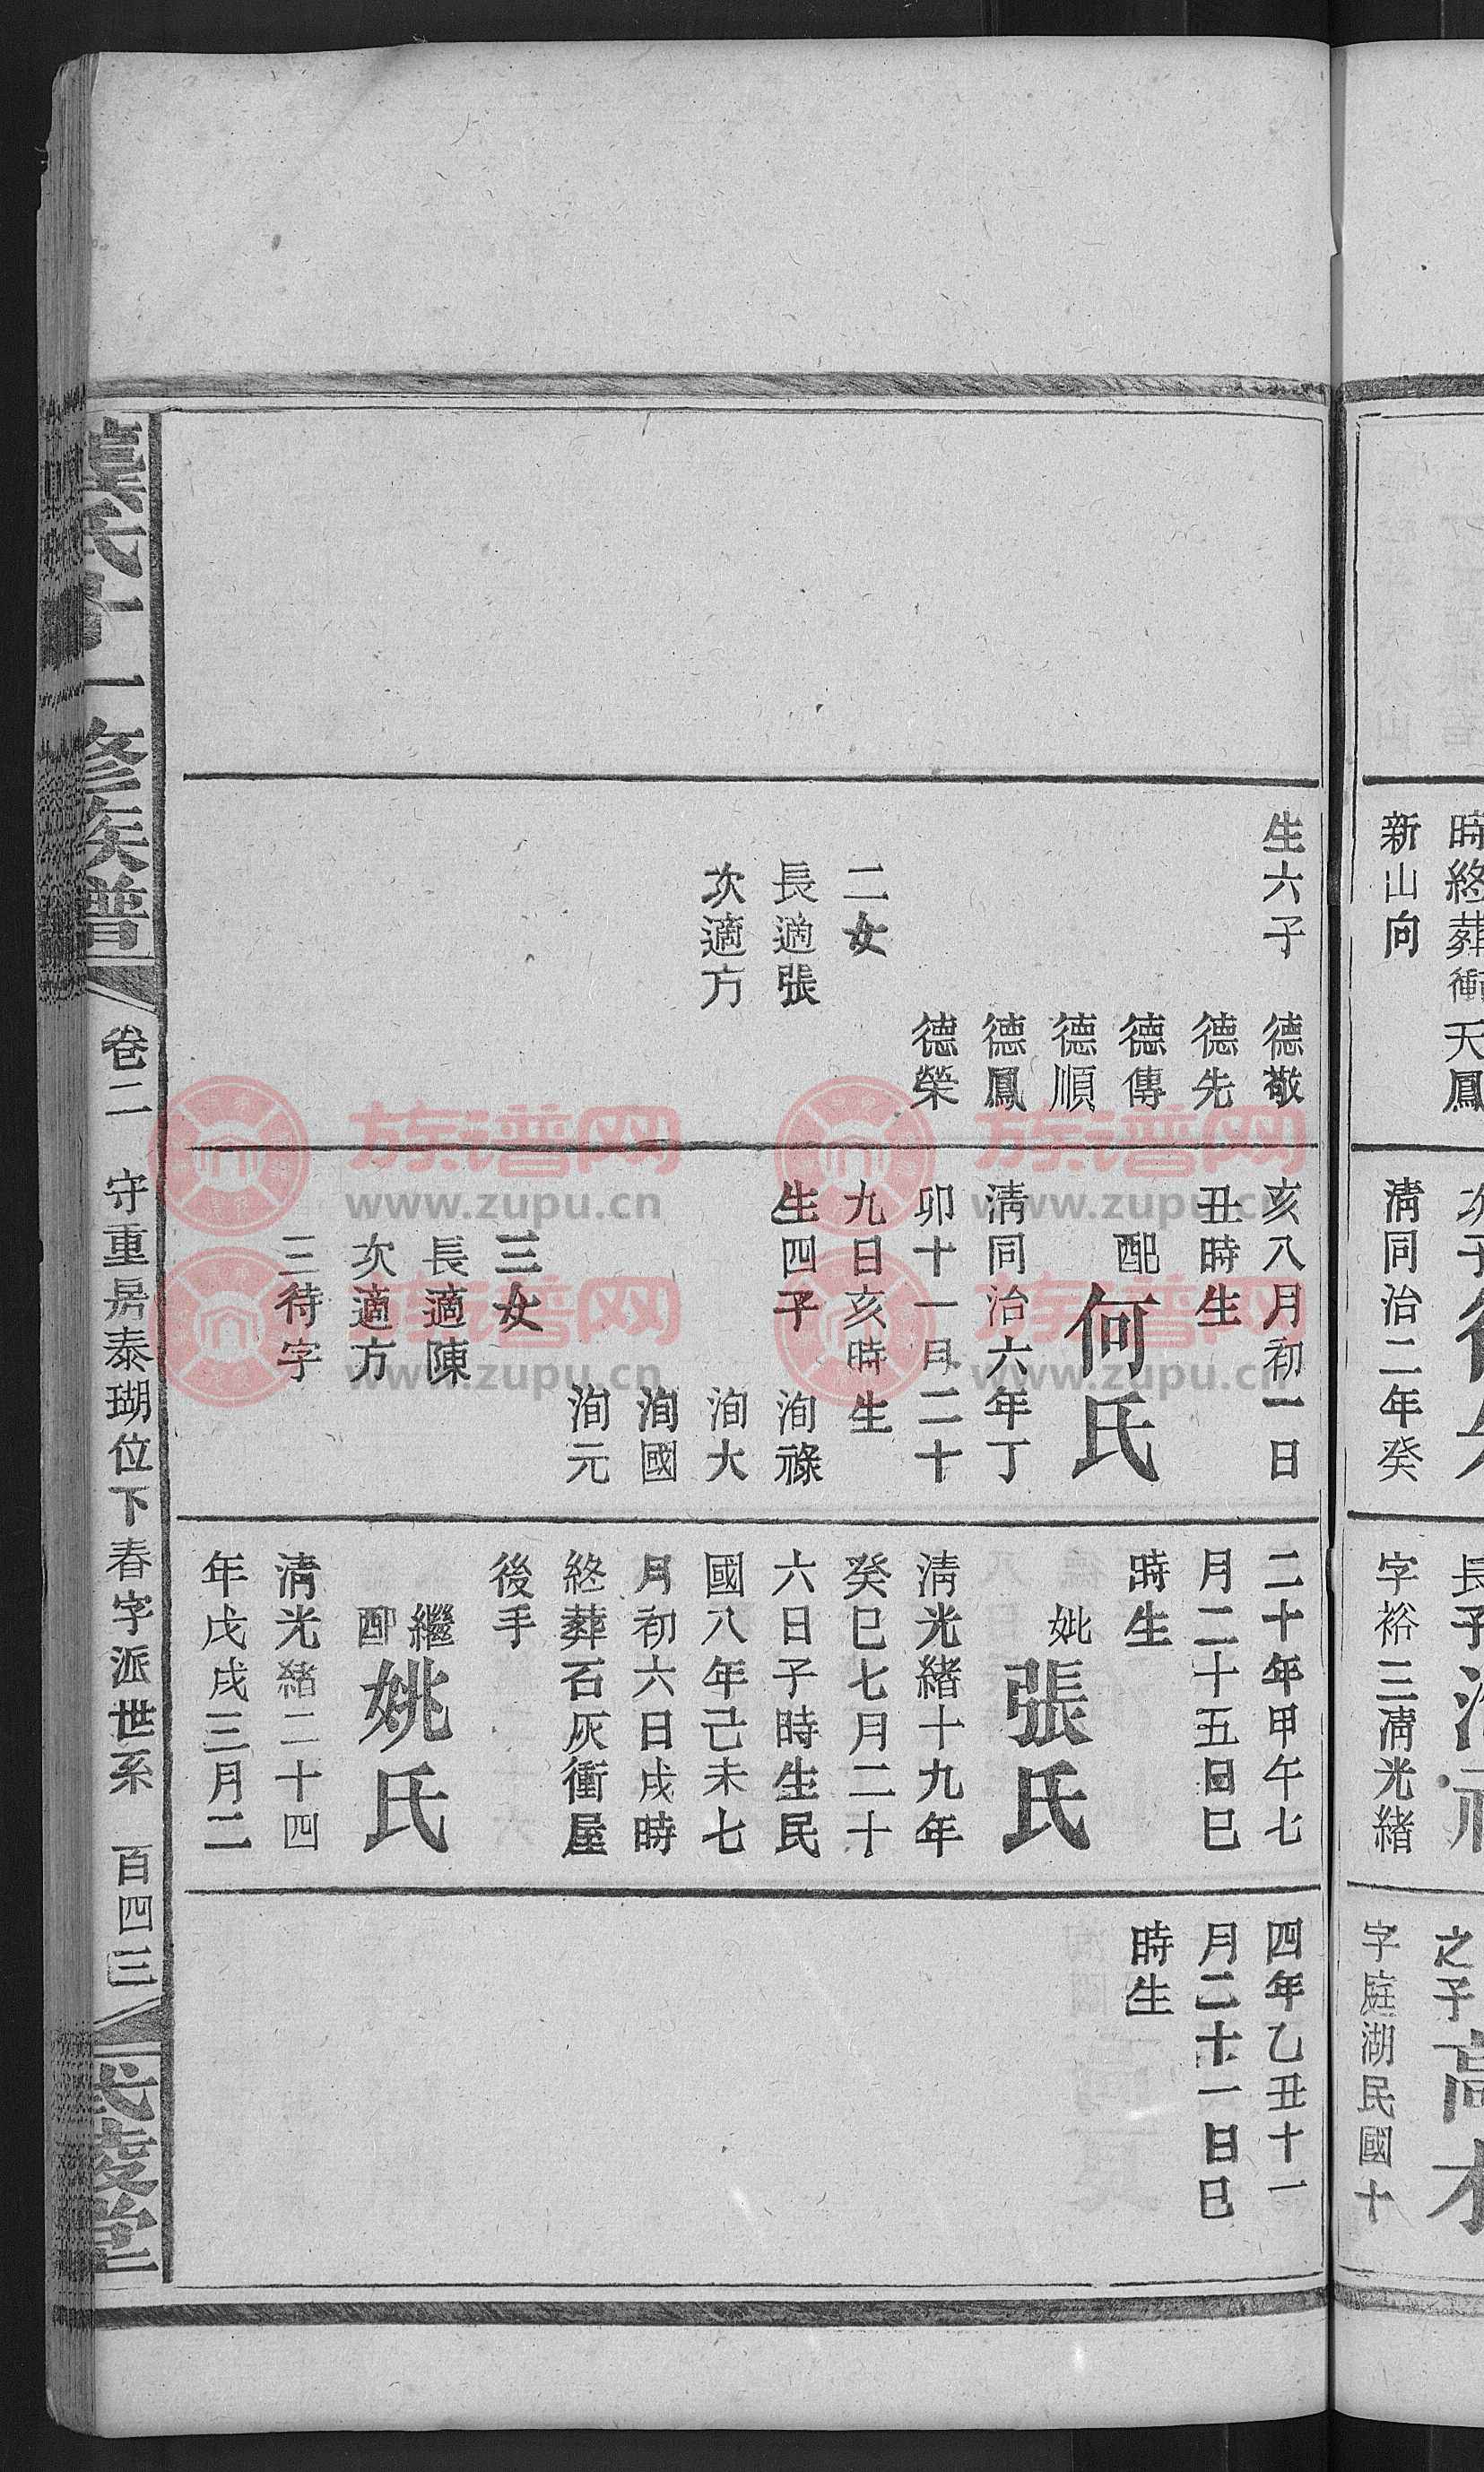 時終葬衝天鳳
新山向
清同治二年癸
字裕三清光緒
之子高
字庭湖民國十
生六子
德敬
德先
德傳
德順
德鳳
德榮
二女
長適張
次適方
亥八月初一日
丑時生
配何氏
清同治六年丁
卯十一月二十
九日亥時生
生四子
洵祿
洵大
洵國
洵元
三女
長適陳
次適方
三待字
二十年甲午七
月二十五日巳
時生
妣張氏
清光緒十九年
癸巳七月二十
六日子時生民
國八年己未七
月初六日戌時
終葬石灰衝屋
後手
繼配姚氏
清光緒二十四
年戊戌三月二
四年乙丑十一
月二十一日巳
時生
氏
一修族譜
卷二
守重房泰瑚位下春字派世系
百四三
武陵堂
族谱网
www.zupu.cn
族谱网
www.zupu.cn
族谱网
www.zupu.cn
族谱网
www.zupu.cn